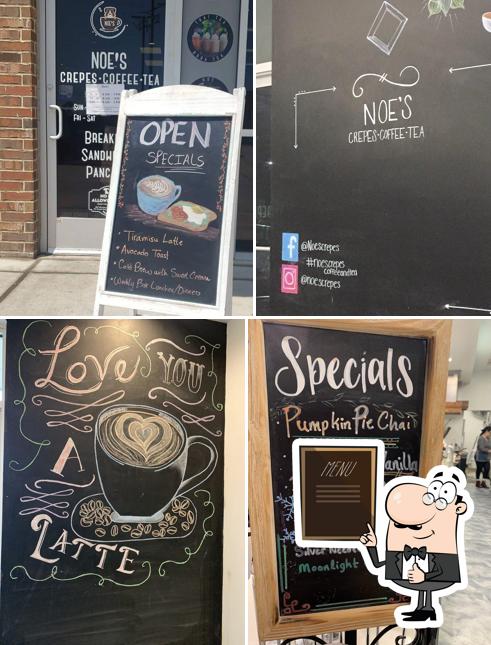 NOE'S
CREPES·COFFEE·TEA
SUN
FRI - SAT
BREAK
SANDW
PANC
OPEN
SPECIALS
• Tiramisu Latte
• Avocado Toast
• Cold Brew with Sweet Cream
NOE'S
CREPES·COFFEE·TEA
@Noescrepes
#noescrepes
coffeeandtea
@noescrepes
Love YOU
A
LATTE
Specials
Pumpkin Pie Chai
anilla
MENU
Silver Need
Moonlight